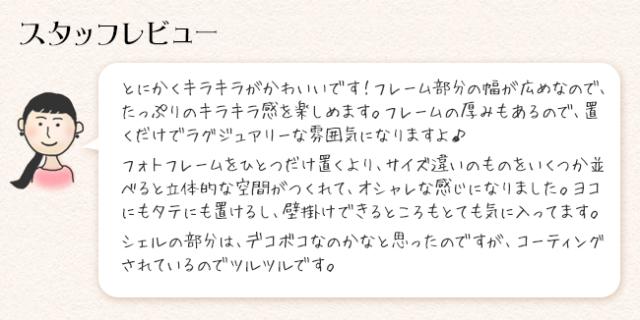 スタッフレビュー
とにかくキラキラがかわいいです！フレーム部分の幅が広めなので、
たっぷりのキラキラ感を楽しめます。フレームの厚みもあるので、置
くだけでラグジュアリーな雰囲気になりますよ♪
フォトフレームをひとつだけ置くより、サイズ違いのものをいくつか並
べると立体的な空間がつくれて、オシャレな感じになりました。ヨコ
にもタテにも置けるし、壁掛けできるところもとても気に入ってます。
シェルの部分は、デコボコなのかなと思ったのですが、コーティング
されているのでツルツルです。